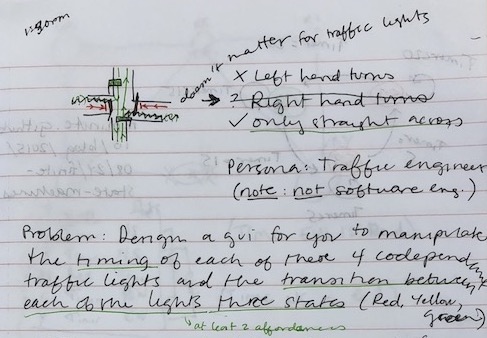 doesn't matter for traffic lights
x Left hand turns
2 Right hand turns
✓ only straight across
Persona: Traffic engineer
(note: not software eng.)
Problem: Design a gui for you to manipulate
the timing of each of these 4 codependent
traffic lights and the transition between
each of the lights three states (Red, Yellow,
green)
at least 2 affordances